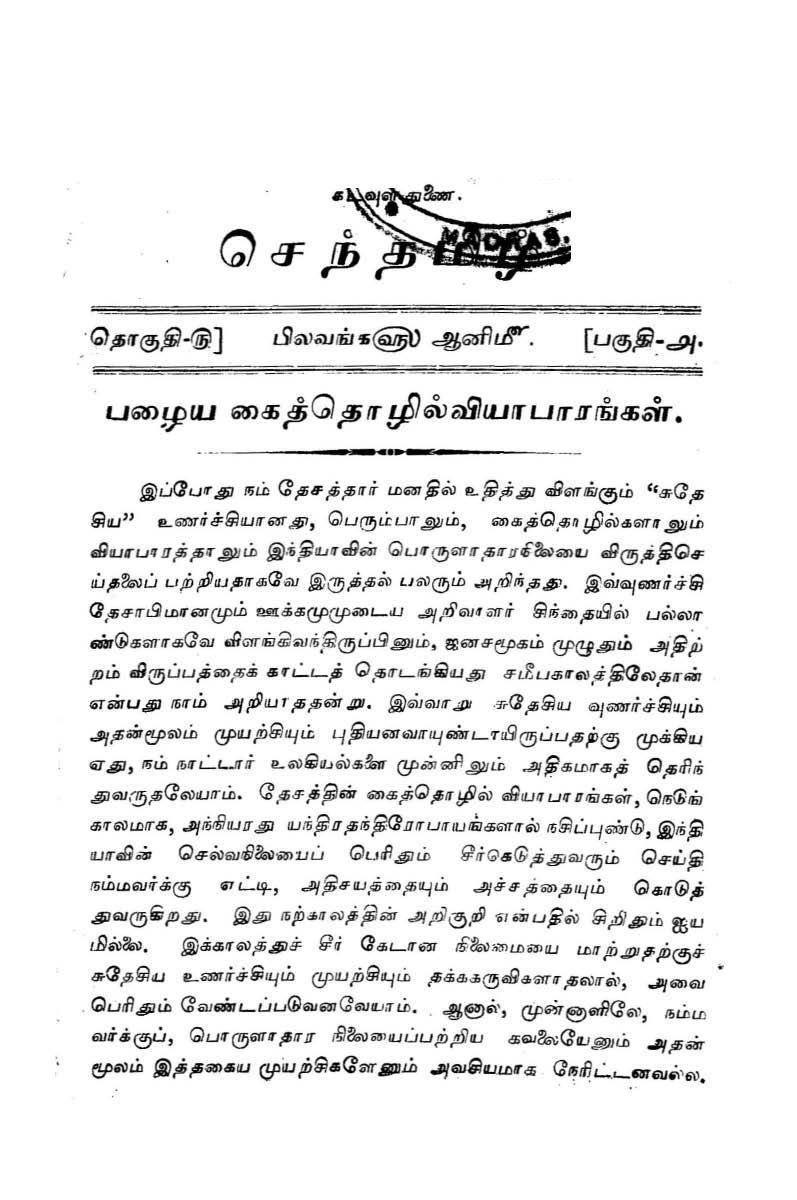 கடவுள் துணை.
MADRAS.
செந்தமிழ்
தொகுதி-௫] பிலவங்கஹு ஆனிமீ. [பகுதி-அ.
பழைய கைத்தொழில்வியாபாரங்கள்.
இப்போது நம் தேசத்தார் மனதில் உதித்து விளங்கும் “சுதே
சிய” உணர்ச்சியானது, பெரும்பாலும், கைத்தொழில்களாலும்
வியாபாரத்தாலும் இந்தியாவின் பொருளாதாரநிலையை விருத்திசெ
ய்தலைப் பற்றியதாகவே இருத்தல் பலரும் அறிந்தது. இவ்வுணர்ச்சி
தேசாபிமானமும் ஊக்கமுமுடைய அறிவாளர் சிந்தையில் பல்லா
ண்டுகளாகவே விளங்கிவந்திருப்பினும், ஜனசமூகம் முழுதும் அதிற்
றம் விருப்பத்தைக் காட்டத் தொடங்கியது சமீபகாலத்திலேதான்
என்பது நாம் அறியாததன்று. இவ்வாறு சுதேசிய வுணர்ச்சியும்
அதன்மூலம் முயற்சியும் புதியனவாயுண்டாயிருப்பதற்கு முக்கிய
ஏது, நம் நாட்டார் உலகியல்களை முன்னிலும் அதிகமாகத் தெரிந்
துவருதலேயாம். தேசத்தின் கைத்தொழில் வியாபாரங்கள், நெடுங்
காலமாக, அந்நியரது யந்திரதந்திரோபாயங்களால் நசிப்புண்டு, இந்தி
யாவின் செல்வநிலையைப் பெரிதும் சீர்கெடுத்துவரும் செய்தி
நம்மவர்க்கு எட்டி, அதிசயத்தையும் அச்சத்தையும் கொடுத்
துவருகிறது. இது நற்காலத்தின் அறிகுறி என்பதில் சிறிதும் ஐய
மில்லை. இக்காலத்துச் சீர் கேடான நிலைமையை மாற்றுதற்குச்
சுதேசிய உணர்ச்சியும் முயற்சியும் தக்ககருவிகளாதலால், அவை
பெரிதும் வேண்டப்படுவனவேயாம். ஆனால், முன்னாளிலே, நம்ம
வர்க்குப், பொருளாதார நிலையைப்பற்றிய கவலையேனும் அதன்
மூலம் இத்தகைய முயற்சிகளேனும் அவசியமாக நேரிட்டனவல்ல.